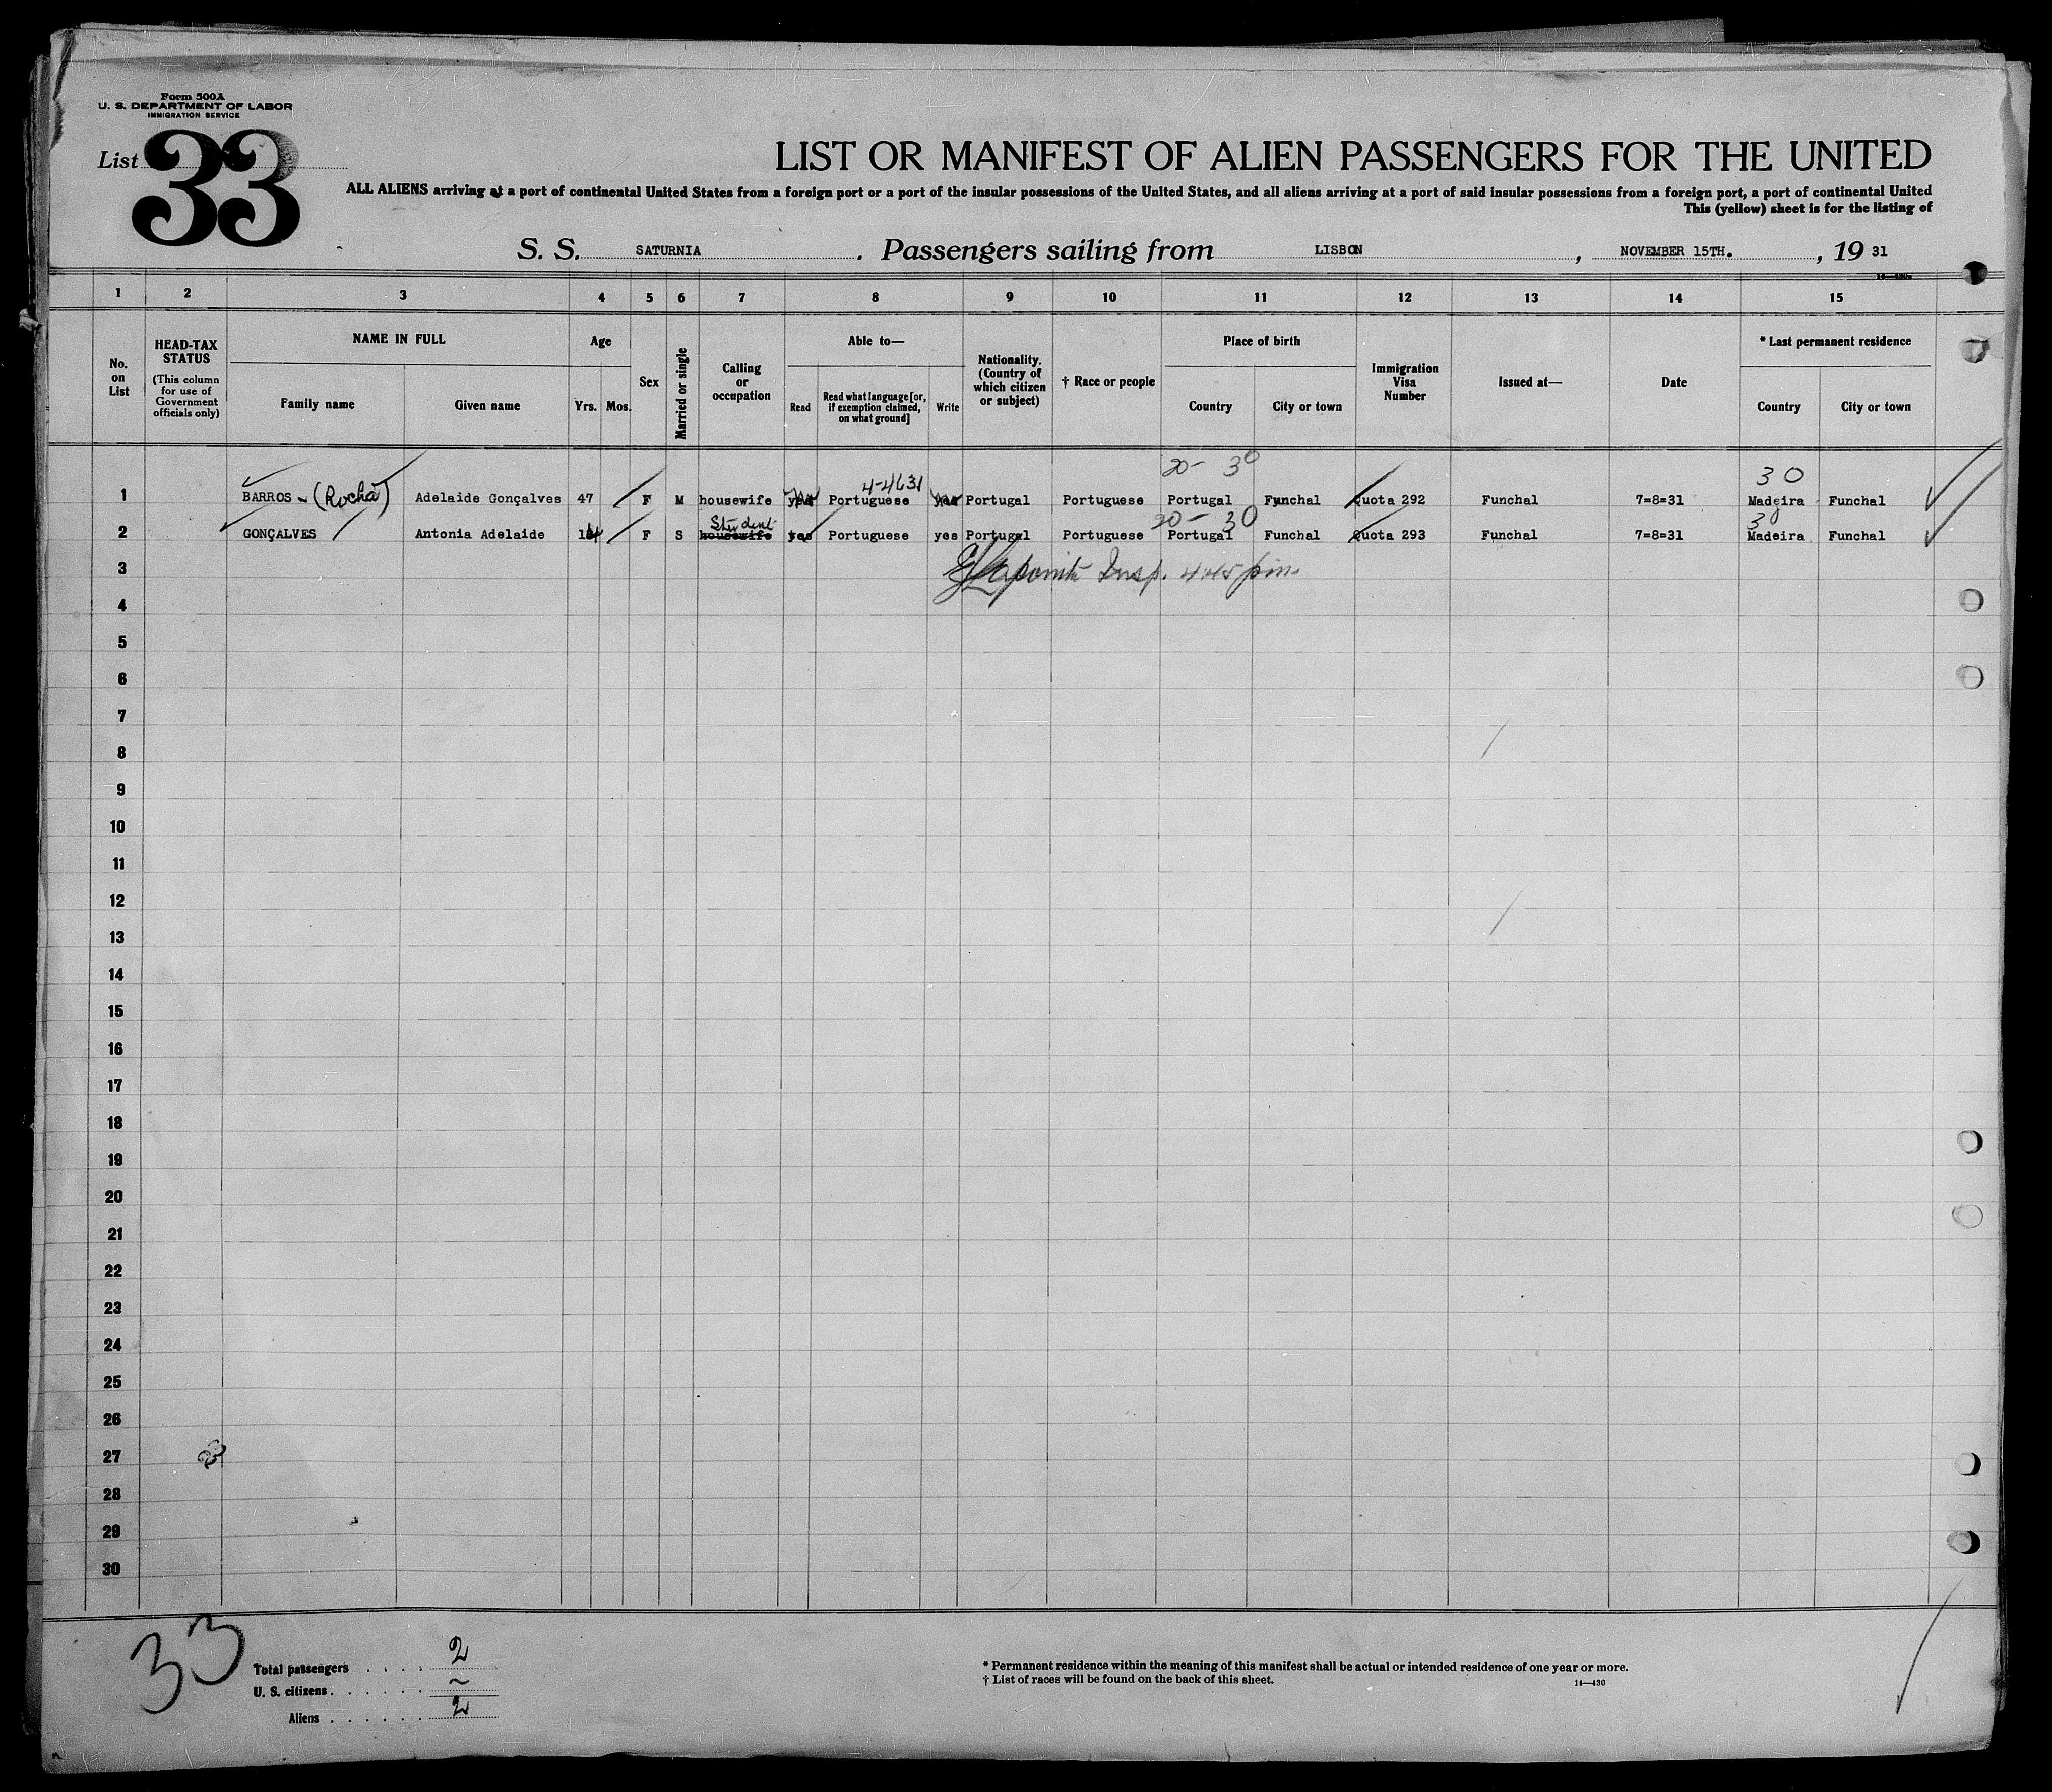 Form 500A
U. S. DEPARTMENT OF LABOR
IMMIGRATION SERVICE
List 33
LIST OR MANIFEST OF ALIEN PASSENGERS FOR THE UNITED
ALL ALIENS arriving at a port of continental United States from a foreign port or a port of the insular possessions of the United States, and all aliens arriving at a port of said insular possessions from a foreign port, a port of continental United
This (yellow) sheet is for the listing of
S. S. SATURNIA. Passengers sailing from LISBON, NOVEMBER 15TH., 19 31
1 2 3 4 5 6 7 8 9 10 11 12 13 14 15
No. on List
HEAD-TAX STATUS
(This column for use of Government officials only)
NAME IN FULL
Family name
Given name
Age
Yrs. Mos.
Sex
Married or single
Calling or occupation
Able to—
Read
Read what language [or, if exemption claimed, on what ground]
Write
Nationality. (Country of which citizen or subject)
† Race or people
Place of birth
Country
City or town
Immigration Visa Number
Issued at—
Date
* Last permanent residence
Country
City or town
4-4631 20- 30 30
1 BARROS - (Rocha) Adelaide Gonçalves 47 F M housewife yes Portuguese yes Portugal Portuguese Portugal Funchal Quota 292 Funchal 7=8=31 Madeira Funchal
Student 20- 30
2 GONÇALVES Antonia Adelaide F S housewife yes Portuguese yes Portugal Portuguese Portugal Funchal Quota 293 Funchal 7=8=31 Madeira Funchal
3 Insp. 445 pm.
4
5
6
7
8
9
10
11
12
13
14
15
16
17
18
19
20
21
22
23
24
25
26
27
28
29
30
33
Total passengers . . . . 2
U. S. citizens . . . . . . ~
Aliens . . . . . . 2
* Permanent residence within the meaning of this manifest shall be actual or intended residence of one year or more.
† List of races will be found on the back of this sheet.
14—430